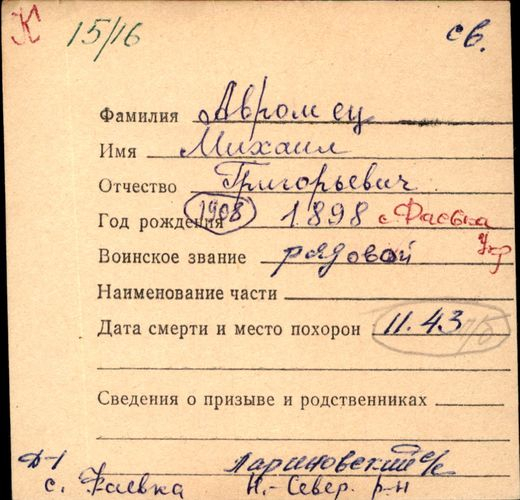 К 15/16 св.
Фамилия Авромец
Имя Михаил
Отчество Григорьевич
Год рождения 1908 1898 с. Фаевка
Укр
Воинское звание рядовой
Наименование части
Дата смерти и место похорон 11.43 п/б
Сведения о призыве и родственниках
Д-1 Лариновский с/с
с. Фаевка Н.-Север. р-н